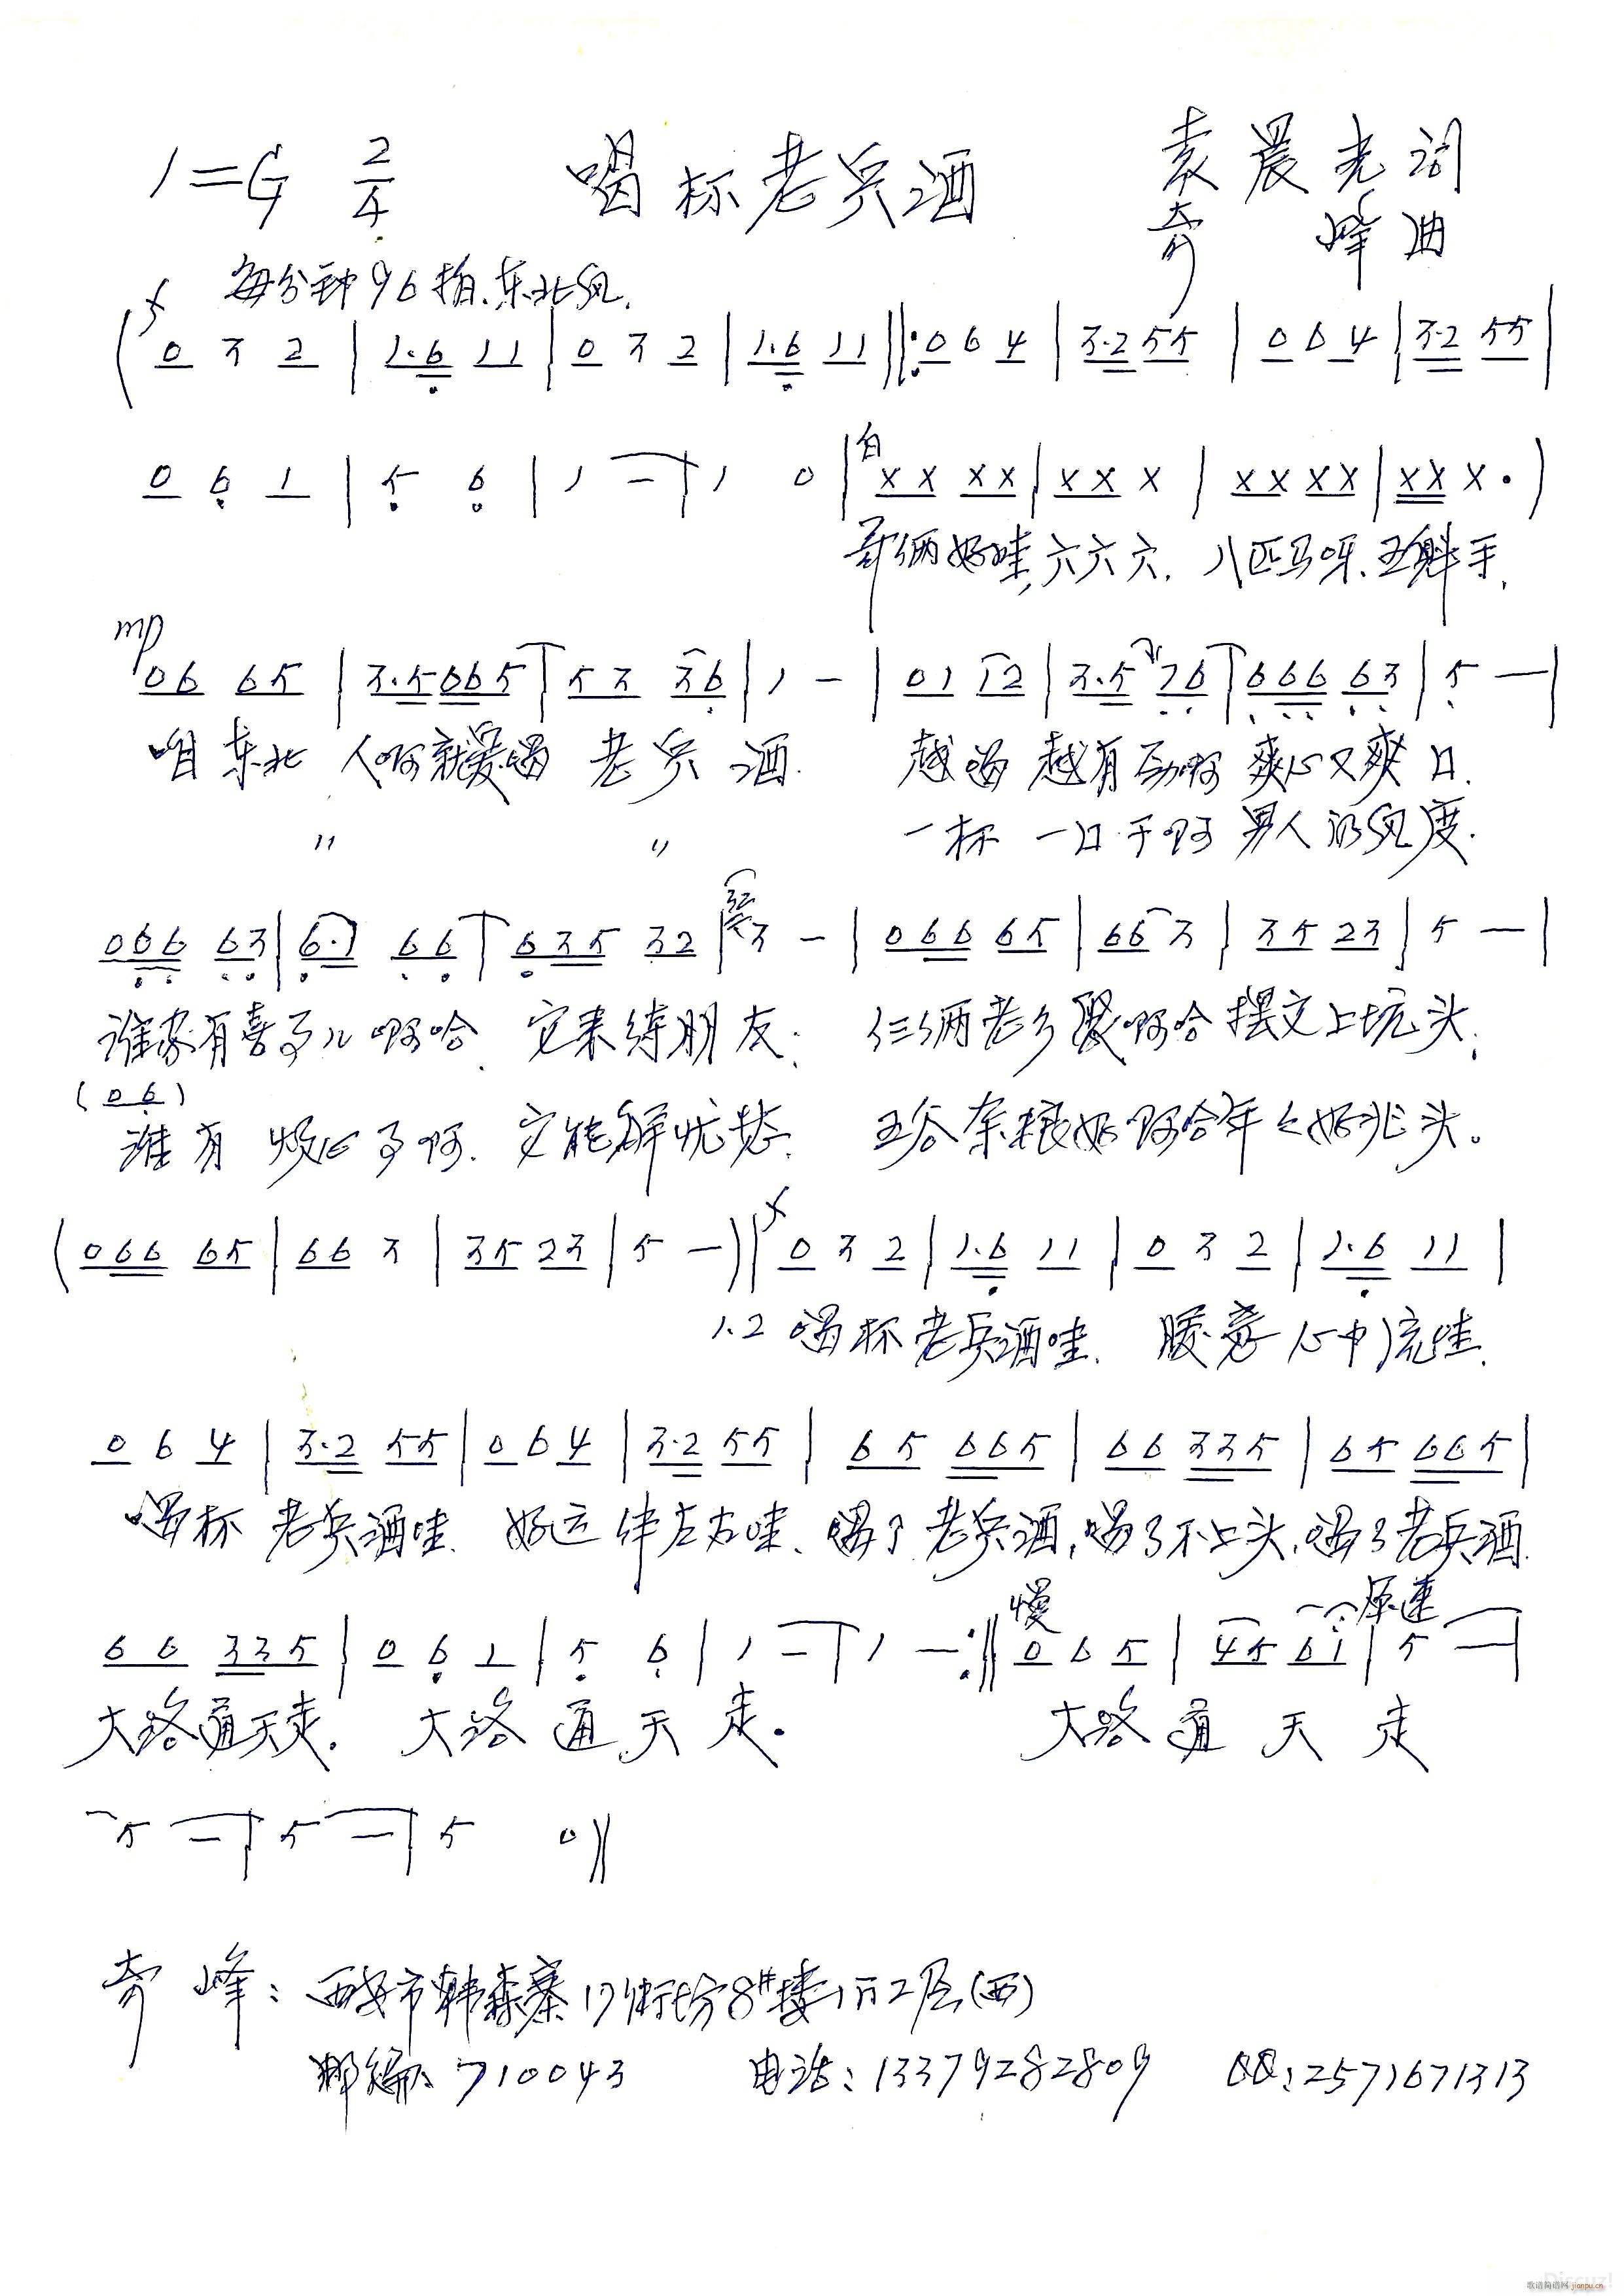 1=G 2/4 喝杯老兵酒 袁晨光词
奇峰曲
f 每分钟96拍.东北风.
( 0 3 2 | 1.6 11 | 0 3 2 | 1.6 11 ‖: 0 6 4 | 3.2 55 | 0 6 4 | 3.2 55 |
0 6 1 | 5 6 | 1 — | 1 0 | 白 XX XX | XX X | XX XX | XX X. )
哥俩好哇,六六六. 八匹马呀.五魁手.
mp
06 65 | 3.5 065 | 53 36 | 1 — | 01 12 | 3.5 76 | 666 63 | 5 — |
咱东北 人啊就爱喝 老兵酒. 越喝 越有劲啊 爽心又爽口.
〃 〃 一杯 一口干啊 男人的风度.
066 63 | 6.1 66 | 635 32 | 3 — | 066 65 | 66 3 | 35 23 | 5 — |
谁家有喜事儿啊哈. 它来续朋友. 仨俩老乡聚啊哈摆文上炕头.
(06)
谁有 烦心事啊. 它能解忧愁. 五谷杂粮好啊哈年々好兆头。
( 066 65 | 66 3 | 35 23 | 5 — ) ‖ f 0 3 2 | 1.6 11 | 0 3 2 | 1.6 11 |
1.2 喝杯老兵酒哇. 暖意心中流哇.
0 6 4 | 3.2 55 | 0 6 4 | 3.2 55 | 65 665 | 66 335 | 65 665 |
喝杯 老兵酒哇. 好运伴左右哇、喝了老兵酒,喝了不上头,喝了老兵酒.
慢 原速
66 335 | 0 6 1 | 5 6 | 1 — | 1 — :‖ 0 6 5 | 45 61 | 5 — |
大路通天走. 大路通天走. 大路通天走
5 — | 5 — | 5 0 ‖
奇峰: 西安市韩森寨17街坊8#楼1门2层(西)
邮编: 710043 电话: 13379282809 QQ: 2571671313
歌谱简谱网 jianpu.cn